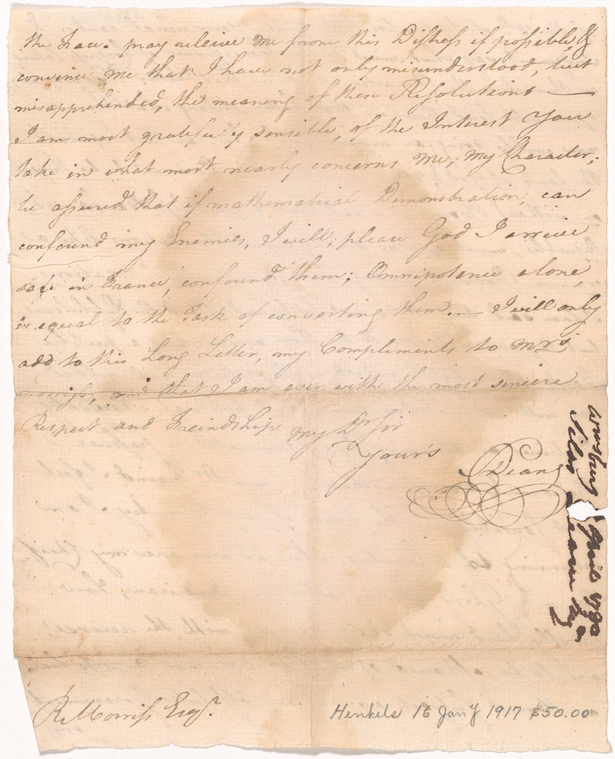 the Fav.r may releive me from this Distress if possible, &
convince me that I have not only misunderstood, but
misapprehended, the meaning of these Resolutions —
I am most gratefully sensible, of the Interest You
take in what most nearly concerns me, my Character,
be assured that if mathematical Demonstration, can
confound my Enemies, I will, please God I arrive
safe in France, confound them; Omnipotence alone,
is equal to the Task of converting them. — I will only
add to this Long Letter, my Compliments to Mrs
Morris, and that I am ever with the most sincere
Respect and Freindship my Dr Sir
Your's
SDeane
R Morriss Esqr.
Henkels 16 Jany 1917 $50.00
Silas Deane Esq